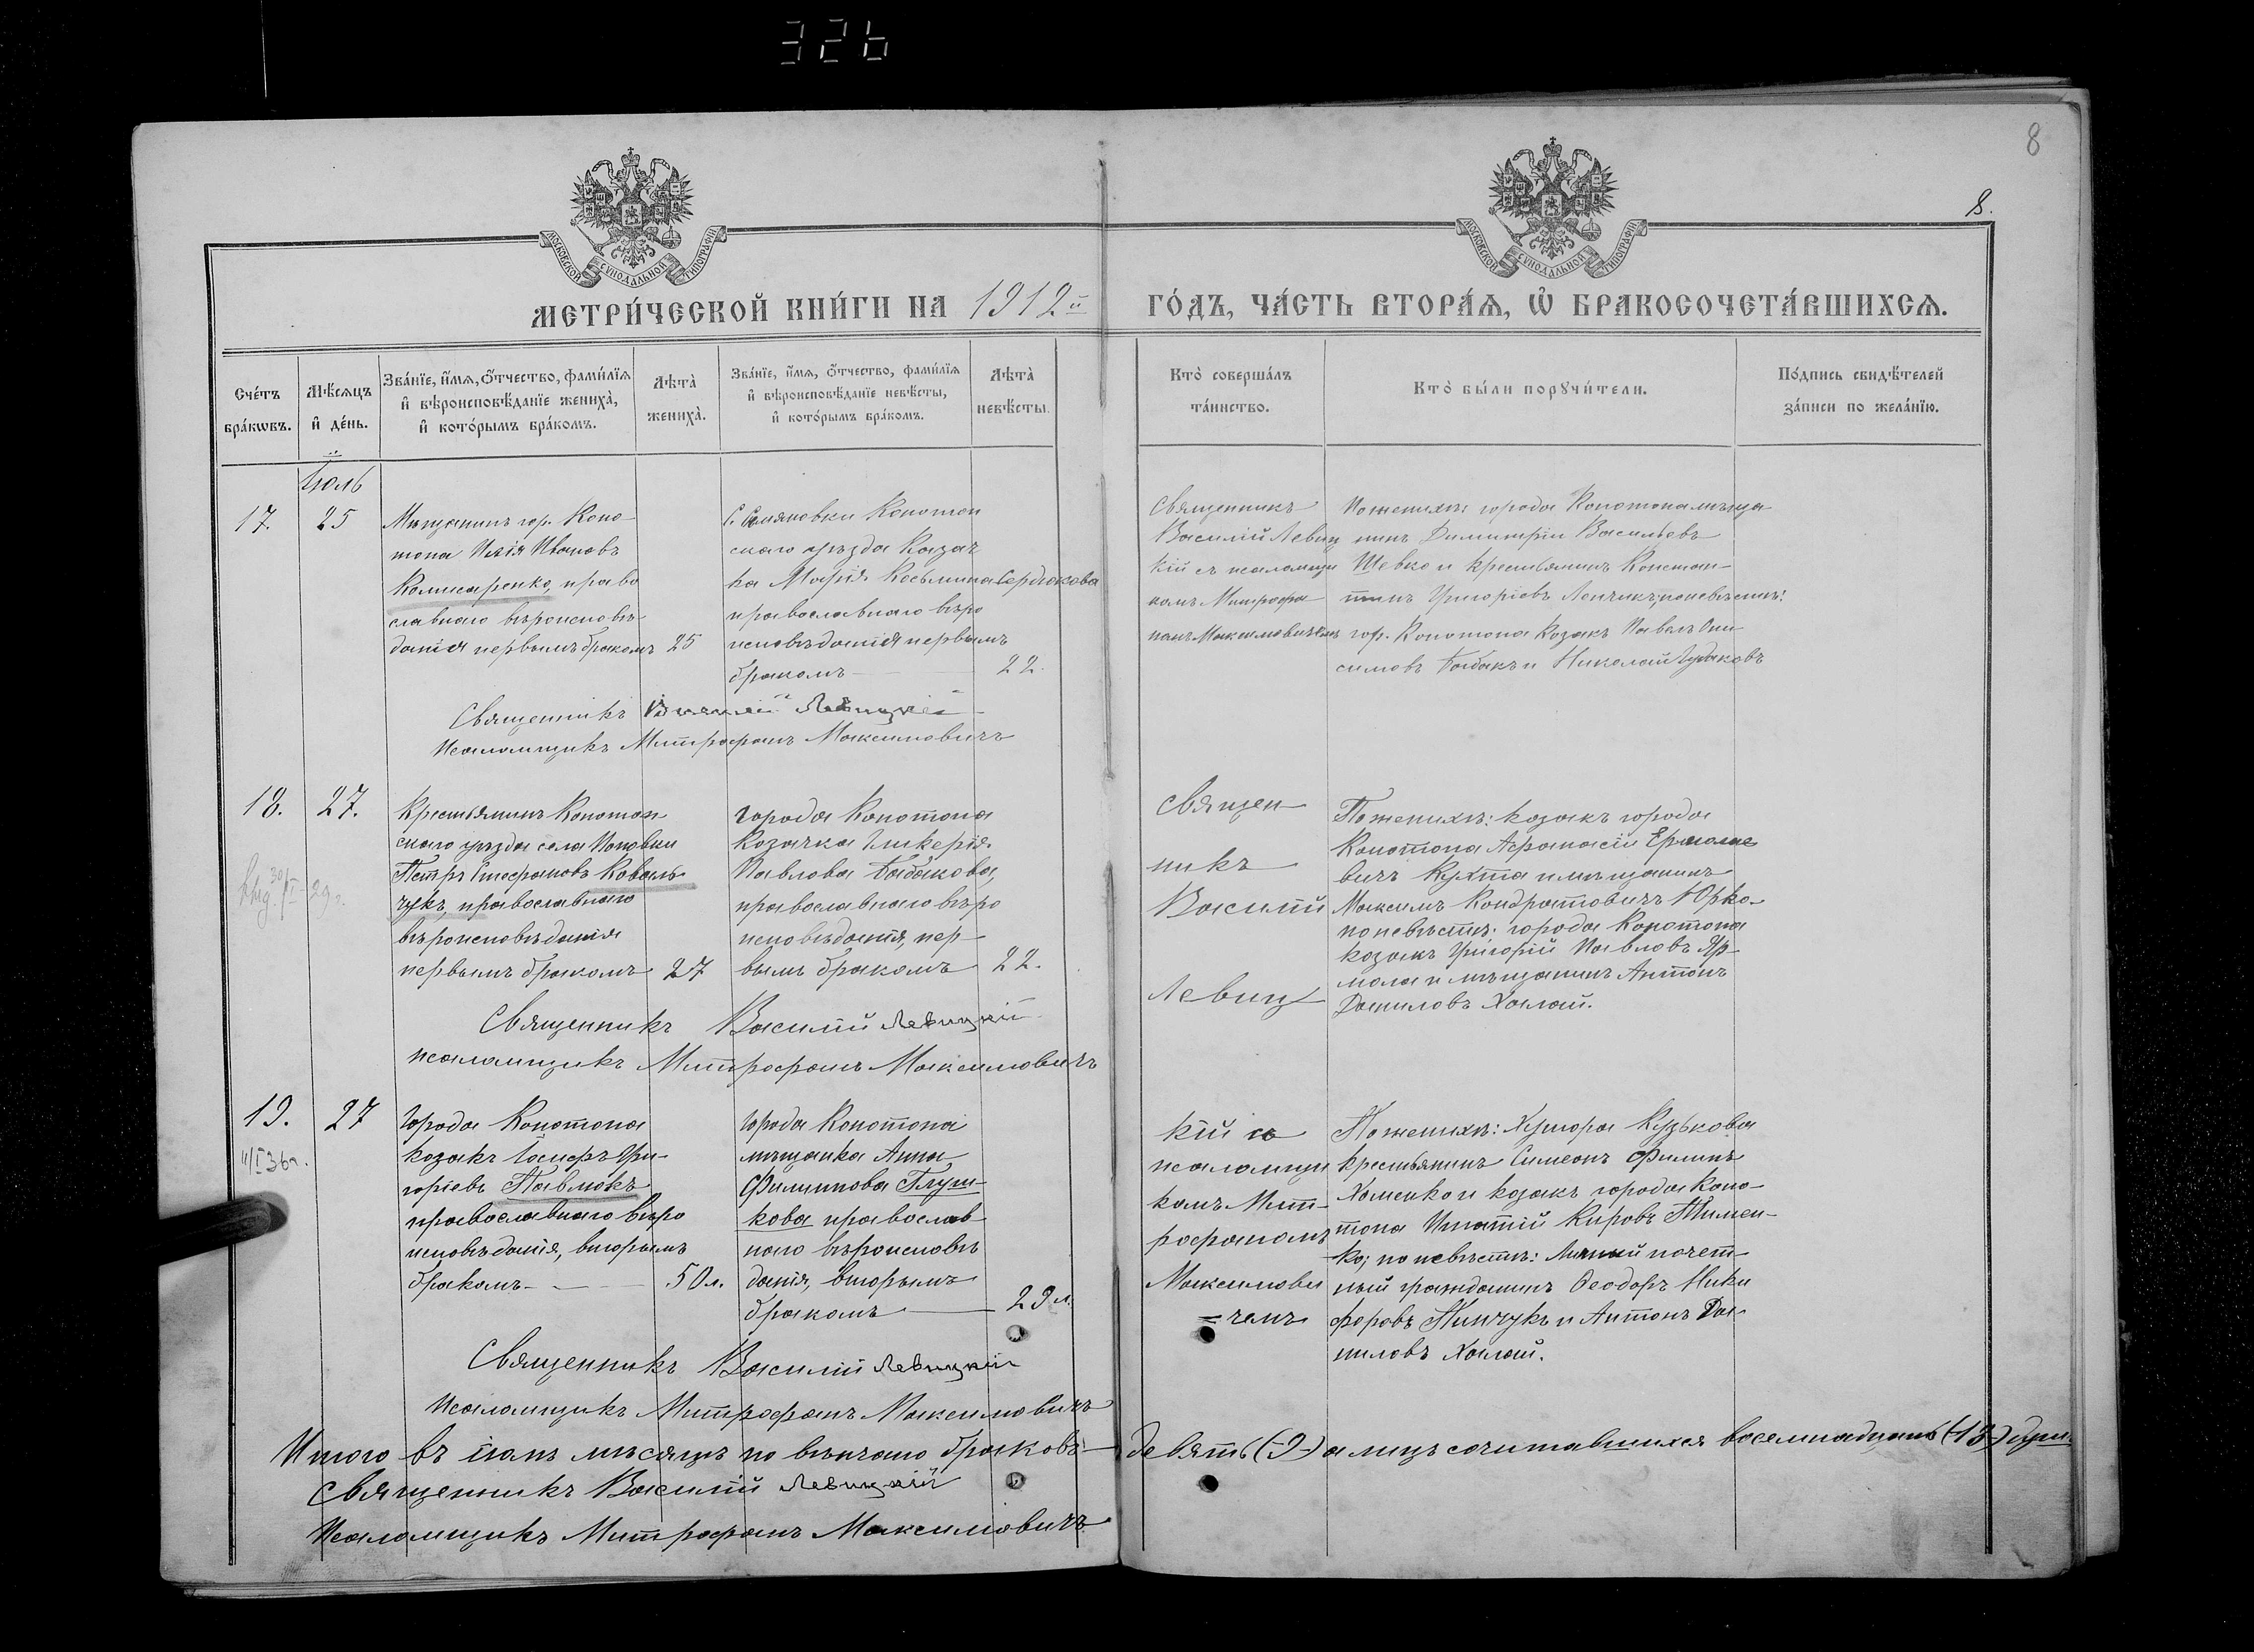 326
8
8.
МОСКОВСКОЙ СУНОДАЛЬНОЙ ТИПОГРАФІИ
МОСКОВСКОЙ СУНОДАЛЬНОЙ ТИПОГРАФІИ
МЕТРИ́ЧЕСКОЙ КНИ́ГИ НА 1912й ГО́ДЪ, ЧА́СТЬ ВТОРА́Ѧ, Ѽ БРАКОСОЧЕТА́ВШИХСѦ.
Сче́тъ бра́кѡвъ.
Мѣ́сяцъ и҆ де́нь.
Зва́нїе, и҆́мѧ, ѻ҆́тчество, фами́лїѧ и҆ вѣроисповѣ́данїе жениха̀, и҆ кото́рымъ бра́комъ.
Лѣта̀ жениха̀.
Зва́нїе, и҆́мѧ, ѻ҆́тчество, фами́лїѧ и҆ вѣроисповѣ́данїе невѣ́сты, и҆ кото́рымъ бра́комъ.
Лѣта̀ невѣ́сты.
Кто̀ соверша́лъ та́инство.
Кто̀ бы́ли порꙋчи́тели.
По́дпись свидѣ́телей за́писи по жела́нїю.
Іюль
17.
25
Мѣщанинъ гор. Коно-
топа Илія Ивановъ
Комисаренко, право
славнаго вѣроисповѣ-
данія первымъ бракомъ
25
С. Семяновки Конотоп
скаго уѣзда Казач
ка Марія Косьмина Сердюкова
православнаго вѣро
исповѣданія первымъ
бракомъ
22.
Священникъ
Василій Левиц
кій съ псаломщи
комъ Митрофа
номъ Максимовичемъ
По женихѣ: города Конотопа мѣща
нинъ Димитрій Васильевъ
Шевко и крестьянинъ Констан-
тинъ Григоріевъ Лепчикъ; по невѣстѣ:
гор. Конотопа Козакъ Павелъ Они
симовъ Бабакъ и Николай Гудаковъ
Священникъ Василій Левицкій
Псаломщикъ Митрофанъ Максимовичъ
18.
27.
29 г.
Крестьянинъ Конотоп
скаго уѣзда села Поповки
Петръ Стефановъ Коваль
чукъ, православнаго
вѣроисповѣданія
первымъ бракомъ
27
города Конотопа
Козачка Гликерія
Павлова Бабакова,
православнаго вѣро
исповѣданія, пер-
вымъ бракомъ
22.
Священ
никъ
Василій
Левиц
По женихѣ: козакъ города
Конотопа Афанасій Ермолае
вичъ Кухта и мѣщанинъ
Максимъ Кондратовичъ Юрко-
по невѣстѣ: города Конотопа
козакъ Григорій Павловъ Яр-
мола и мѣщанинъ Антонъ
Даниловъ Халай.
Священникъ Василій Левицкій
псаломщикъ Митрофанъ Максимовичъ
19.
27
11/I 36г.
города Конотопа
козакъ Іосифъ Гри-
горіевъ Павлюкъ
православнаго вѣро
исповѣданія, вторымъ
бракомъ
50 л.
города Конотопа
мѣщанка Анна
Филиппова Глуш-
кова православ
наго вѣроисповѣ
данія, вторымъ
бракомъ
29 л.
кій съ
псаломщи
комъ Мит-
рофаномъ
Максимови
=чемъ
По женихѣ: Хутора Кузькова
крестьянинъ Симеонъ Филипъ
Хоменко и козакъ города Коно-
топа Игнатій Кировъ Тимен-
ко; по невѣстѣ: Личный почет-
ный гражданинъ Ѳеодоръ Ники
форовъ Пинчукъ и Антонъ Да-
ниловъ Халай.
Священникъ Василій Левицкій
Псаломщикъ Митрофанъ Максимовичъ
Итого въ іюлѣ мѣсяцѣ по вѣнчано браковъ девять (-9-) а лицъ сочитавшихся восемнадцать (-18-) душъ
Священникъ Василій Левицкій
Псаломщикъ Митрофанъ Максимовичъ